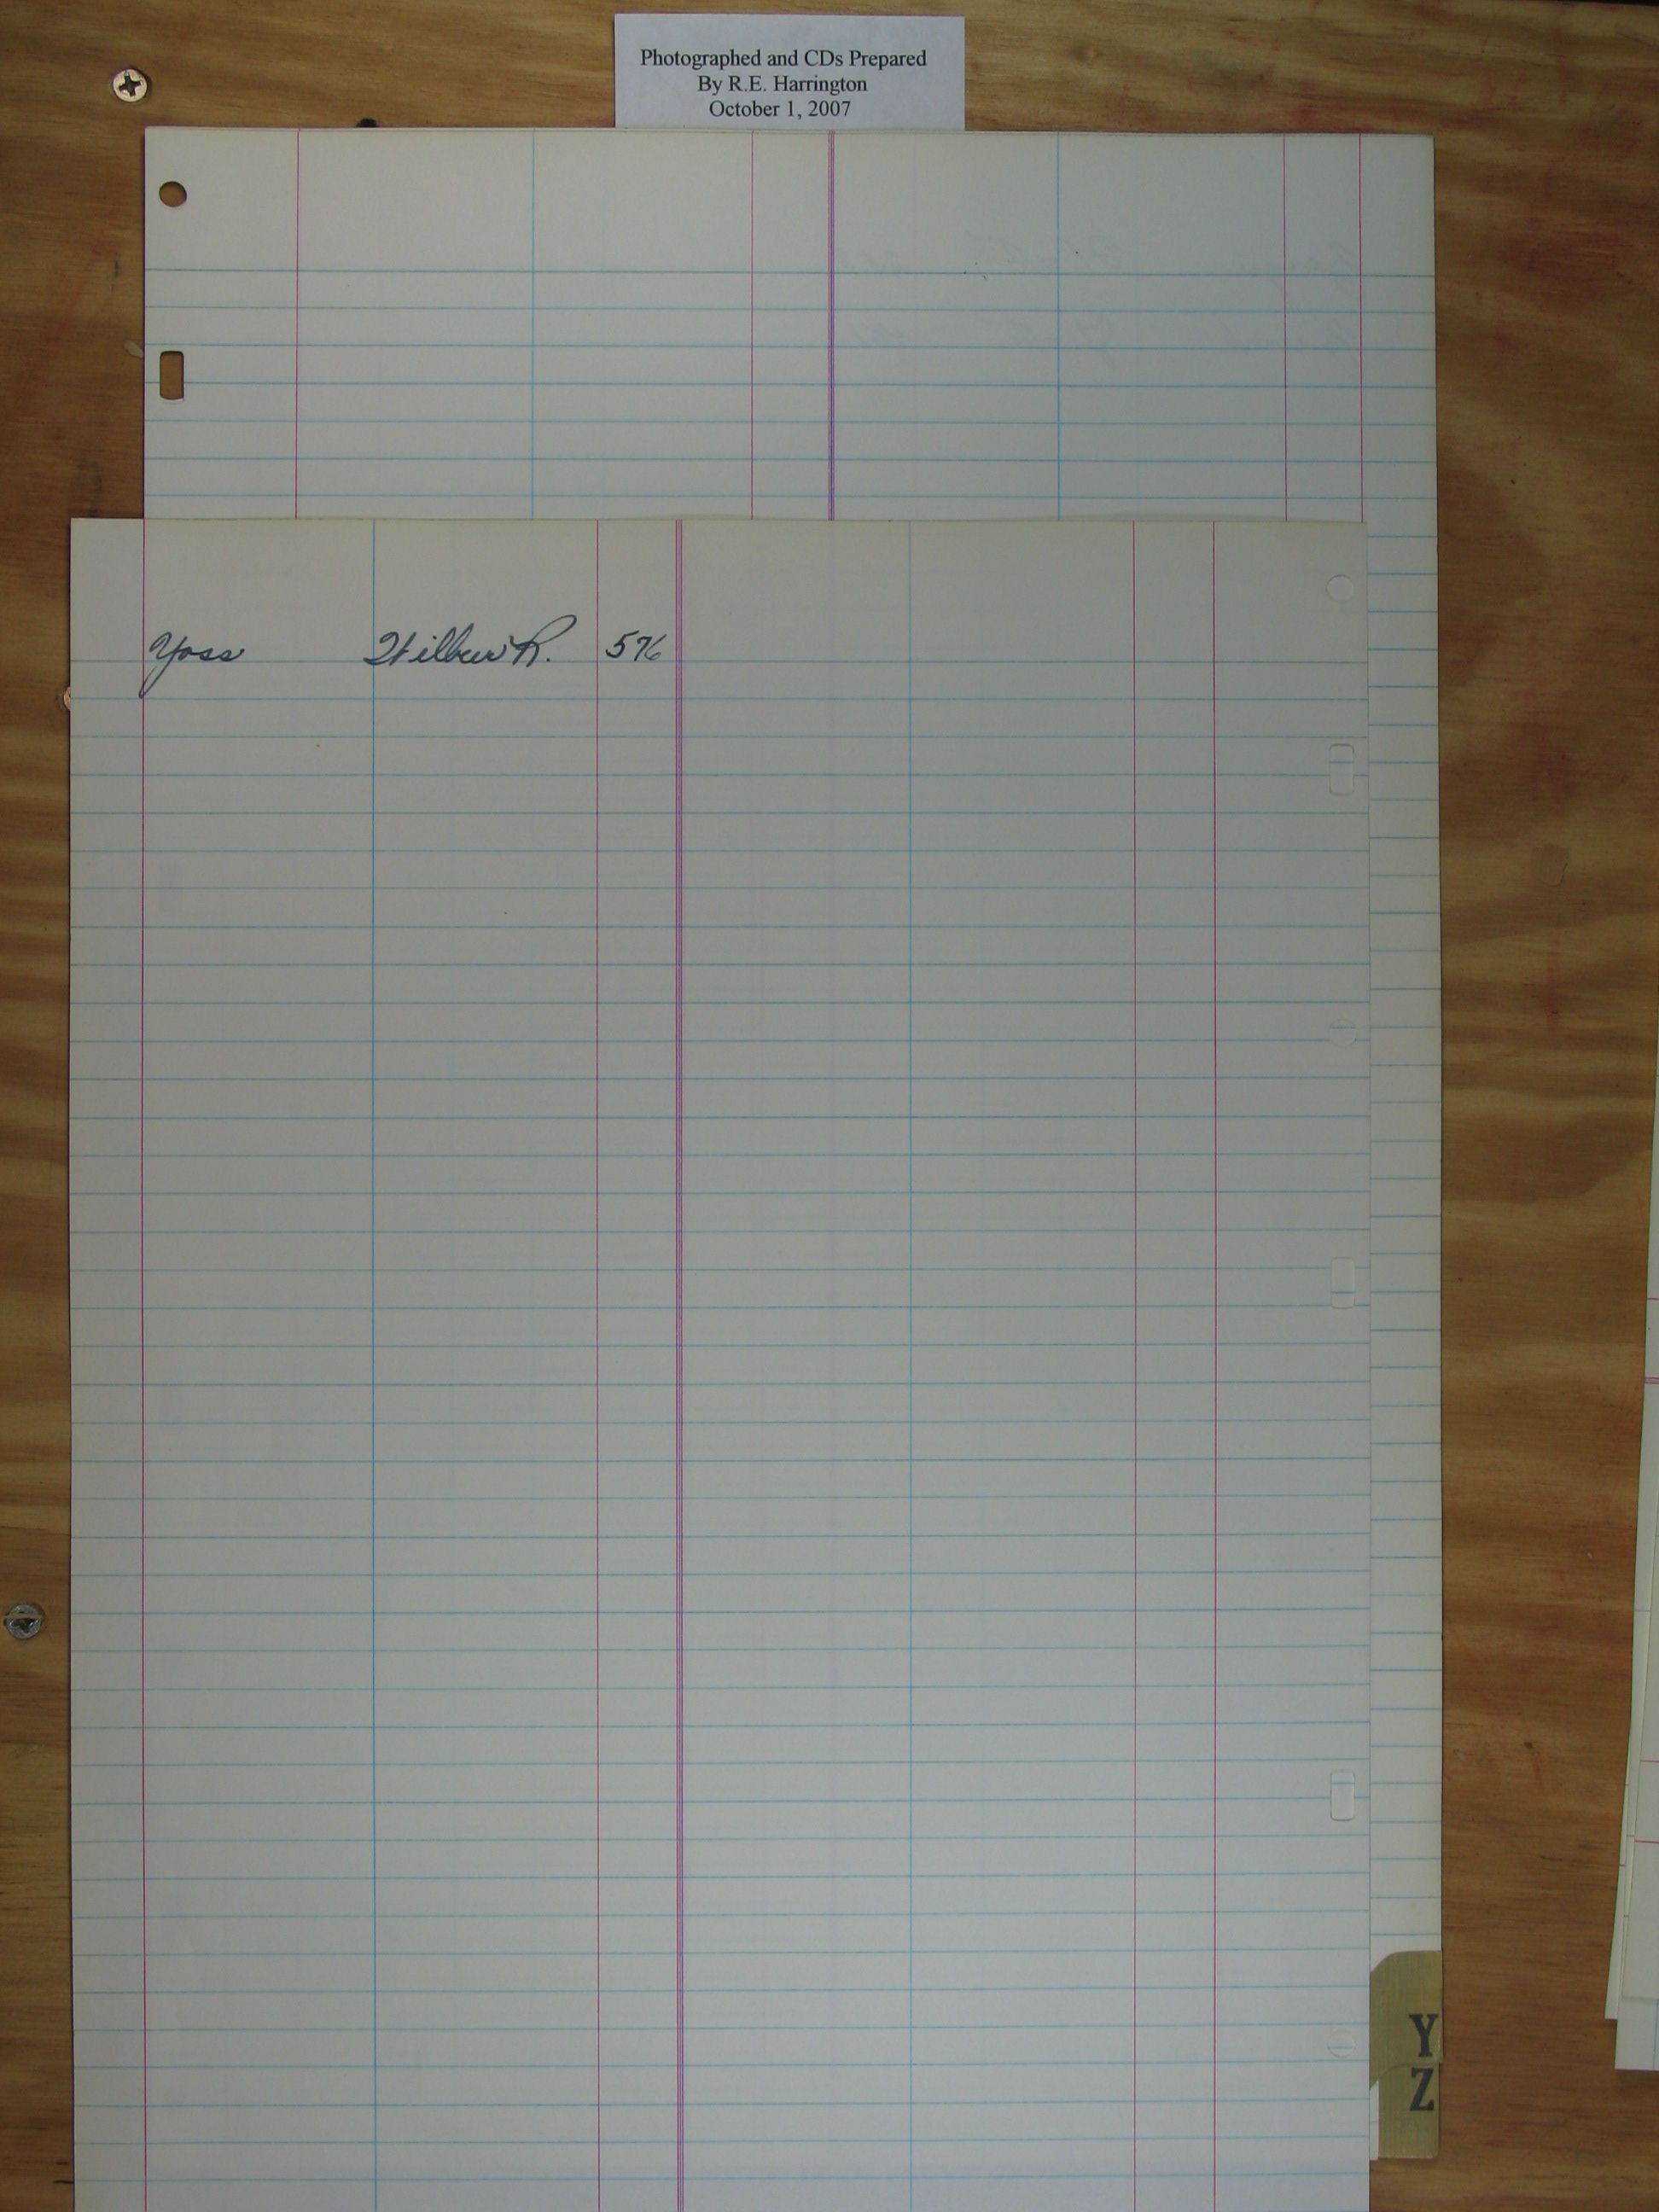 Photographed and CDs Prepared
By R.E. Harrington
October 1, 2007
Yoss Wilbur R. 576
Y
Z